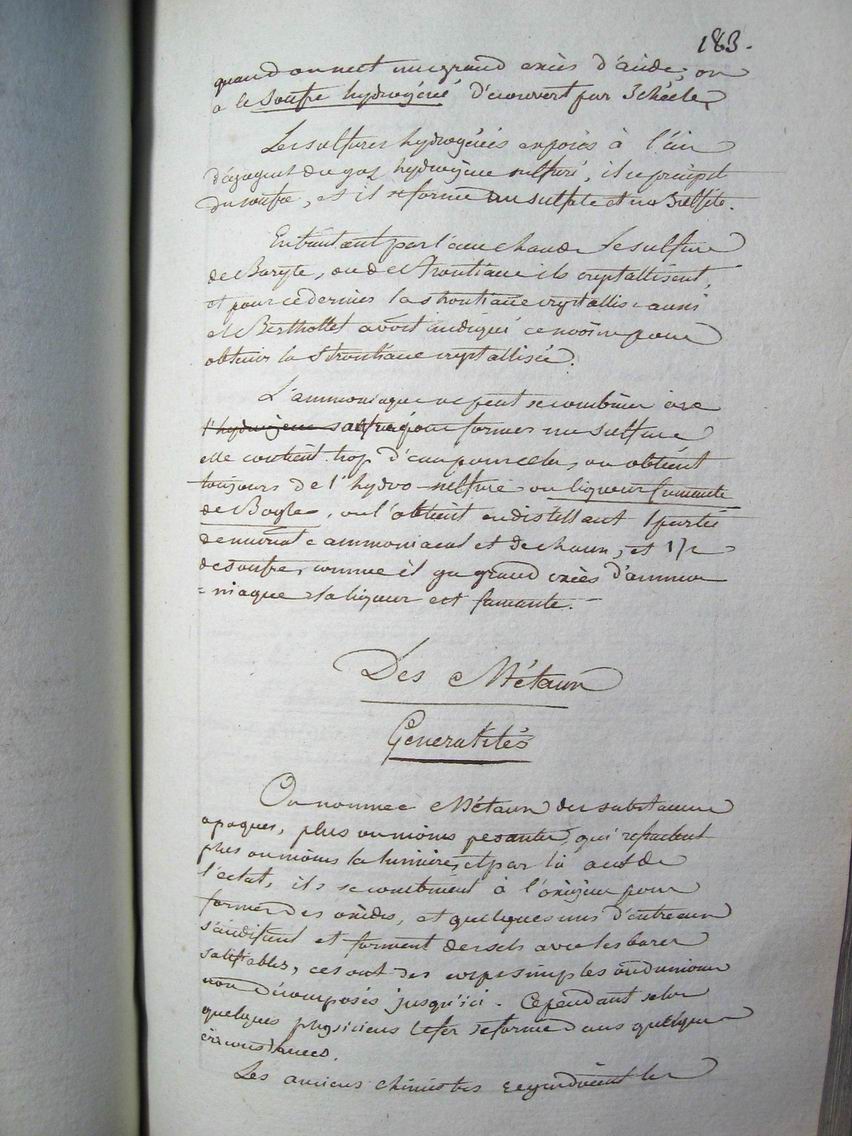 183.
quand on met un grand excès d'acide, on
a le soufre hydrogéné découvert par Schéele
Les sulfures hydrogénés exposés à l'air
dégagent du gaz hydrogène sulfuré, il se précipite
du soufre, et il se forme un sulfate et un sulfite.
En traitant par l'eau chaude le sulfure
de Baryte, ou de strontiane ils crystallisent,
et pour ce dernier la strontiane crystallise aussi
et Berthollet avoit indiqué ce moïen pour
obtenir la strontiane crystallisée.
L'ammoniaque ne peut se combiner avec
l'hydrogene sulfuré pour former un sulfure
elle contient trop d'eau pour cela, on obtient
toujours de l'hydro-sulfure ou liqueur fumante
de Boyle, on l'obtient en distillant 1 partie
de muriate ammoniacal et de chaux, et 1/2
de soufre, comme il y a grand excès d'ammo
= niaque la liqueur est fumante.
Des Métaux
Généralités
On nomme Métaux des substances
opaques, plus ou moins pesantes, qui refractent
plus ou moins la lumière, et par là ont de
l'éclat, ils se combinent à l'oxigène pour
former des oxides, et quelques uns d'entre eux
s'acidifient et forment des sels avec les bases
salifiables, ce sont des corps simples ou du moins
non décomposés jusqu'ici. Cependant selon
quelques physiciens le fer se forme dans quelques
circonstances.
Les anciens chimistes regardoient les